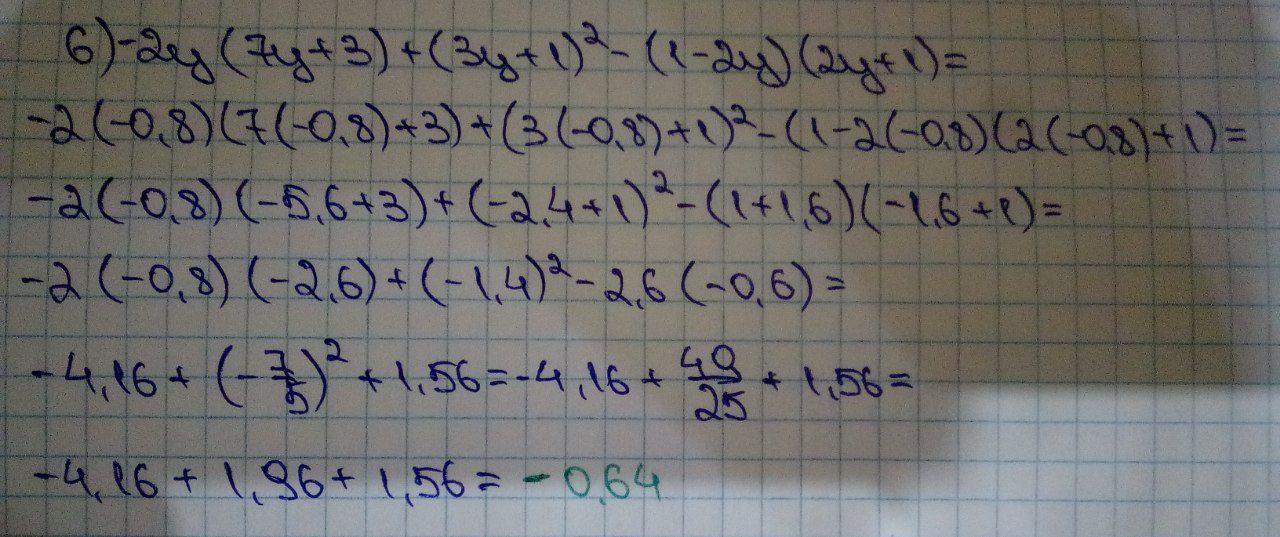 6) -2y (7y+3) + (3y+1)² - (1-2y) (2y+1) =
-2 (-0,8) (7 (-0,8) +3) + (3 (-0,8) +1)² - (1-2 (-0,8) (2 (-0,8) +1) =
-2 (-0,8) (-5,6+3) + (-2,4+1)² - (1+1,6) (-1,6+1) =
-2 (-0,8) (-2,6) + (-1,4)² - 2,6 (-0,6) =
-4,16 + (-7/5)² + 1,56 = -4,16 + 49/25 + 1,56 =
-4,16 + 1,96 + 1,56 = -0,64